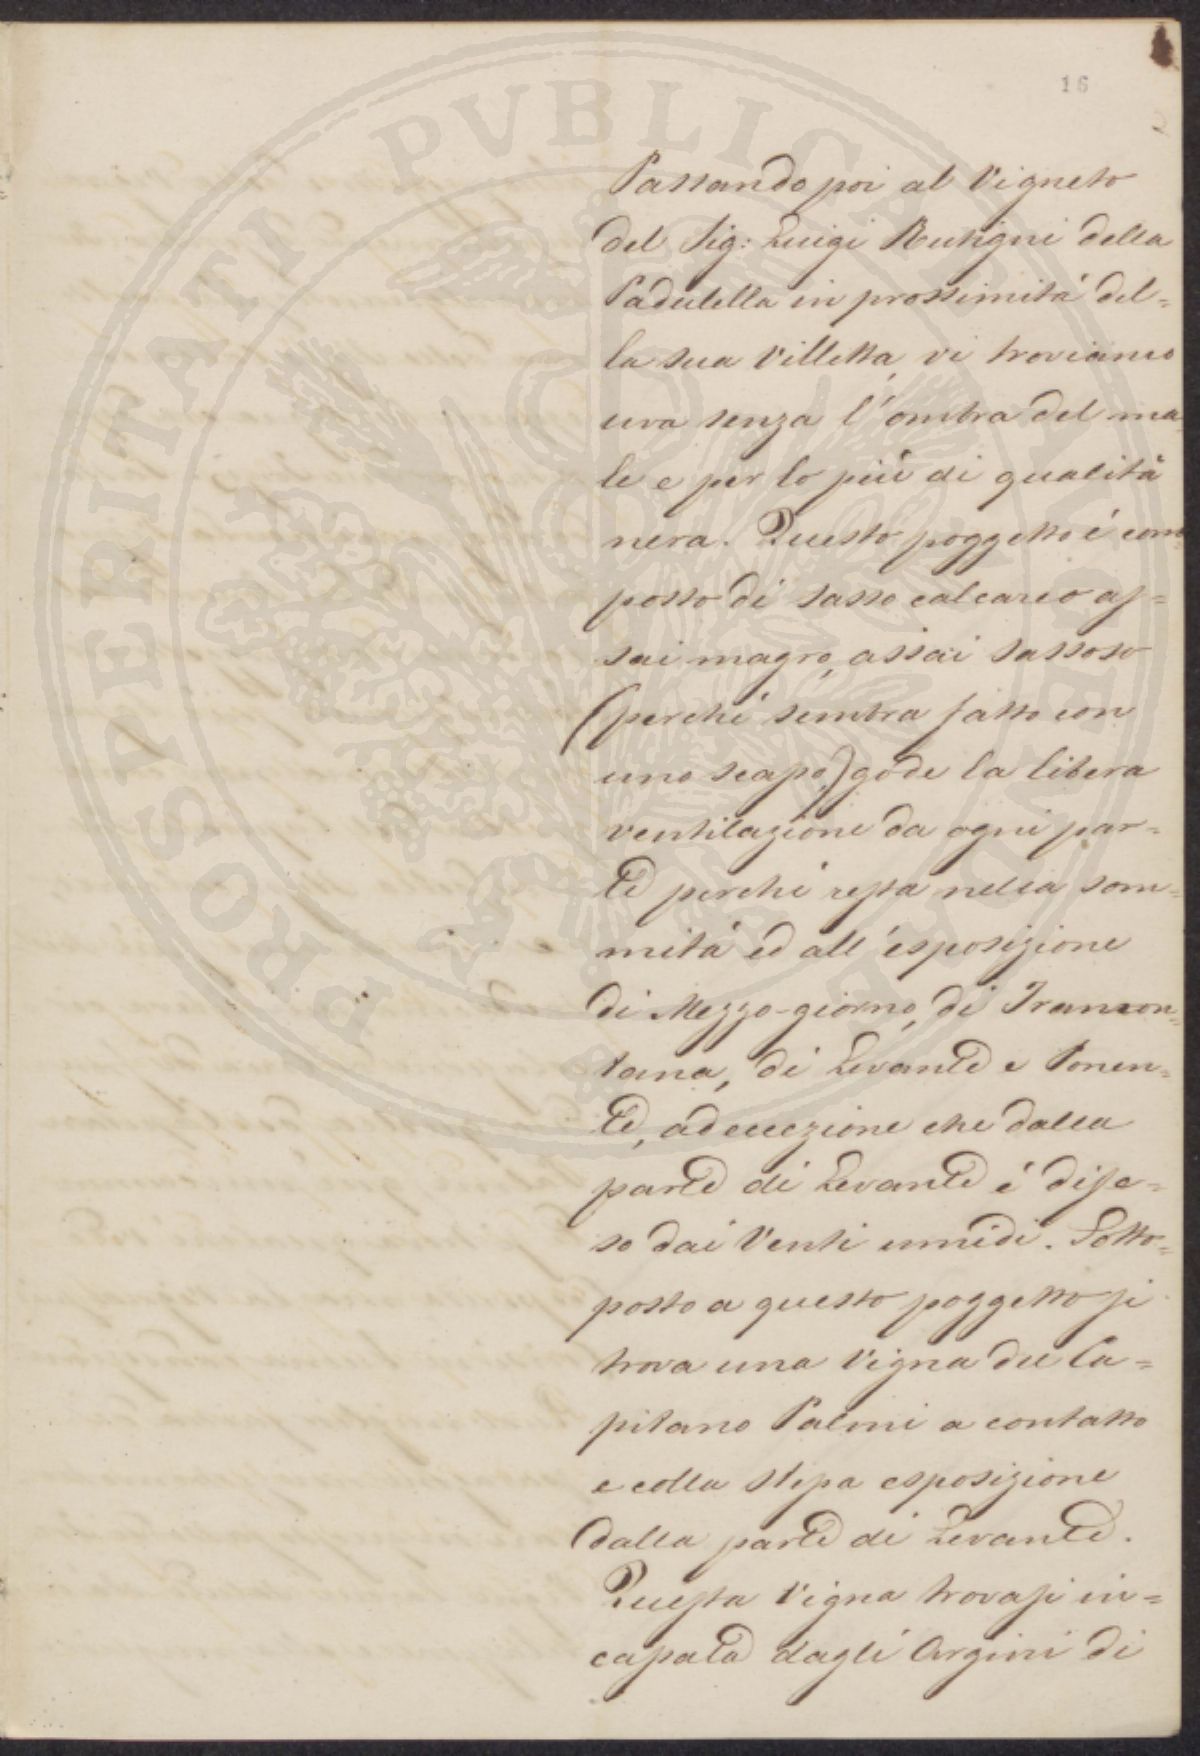 16
PROSPERITATI PVBLICAE AVGENDAE
Passando poi al Vigneto
del Sig: Luigi Rutigni della
Padulella in prossimità del=
la sua Villetta, vi troviamo
uva senza l'ombra del ma
le e per lo più di qualità
nera. Questo poggetto é com
posto di sasso calcareo as=
sai magro, assai sassoso
(perché sembra fatto con
uno scapo) gode la libera
ventilazione da ogni par=
te perché resta nella som=
mità ed all'esposizione
di Mezzo-giorno, di Tramon=
tana, di Levante e Ponen=
te, ad eccezione che dalla
parte di Levante é dife=
so dai Venti umidi. Sotto=
posto a questo poggetto si
trova una Vigna del Ca=
pitano Palmi a contatto
e colla stessa esposizione
dalla parte di Levante.
Questa Vigna trovasi in=
casata dagli Argini di